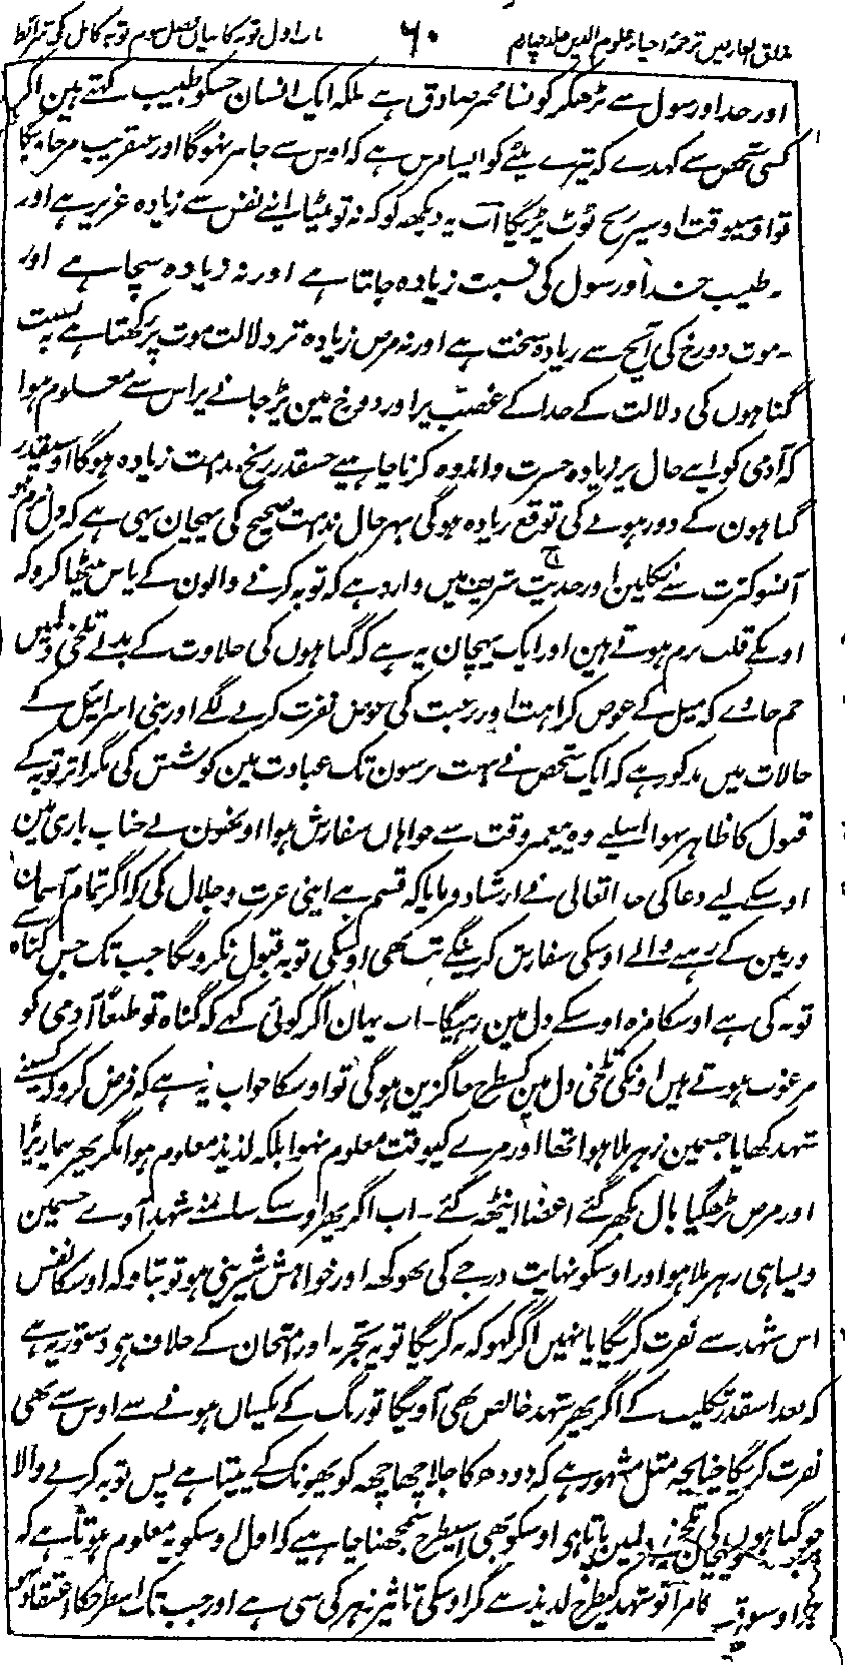 مذاق العارفین ترجمۂ احیاء علوم الدین جلد چہارم ۶۰ باب اول توبہ کا بیان فصل سوم توبہ کامل کی شرائط
اور خدا اور رسول سے بڑھکر کونسا مخبر صادق ہے بلکہ ایک انسان جسکو طبیب کہتے ہین اگر
کسی شخص سے کہدے کہ تیرے بیٹے کو ایسا مرض ہے کہ اوس سے جانبر نہوگا اور عنقریب مر جاویگا
تو اوسیوقت اوسپر رنج ٹوٹ پڑیگا اب یہ دیکھو کہ نہ تو بیٹا اپنے نفس سے زیادہ عزیز ہے اور
نہ طبیب خدا اور رسول کی نسبت زیادہ جانتا ہے اور نہ زیادہ سچا ہے اور
نہ موت دوزخ کی آنچ سے زیادہ سخت ہے اور نہ مرض زیادہ تر دلالت موت پر رکھتا ہے بہ نسبت
گناہوں کی دلالت کے خدا کے غضب پر اور دوزخ مین پڑ جانے پر اس سے معلوم ہوا
کہ آدمی کو اپنے حال پر زیادہ حسرت و اندوہ کرنا چاہیے جسقدر رنج ندامت زیادہ ہوگا اوسیقدر
گناہون کے دور ہونے کی توقع زیادہ ہوگی بہر حال ندامت صحیح کی پہچان یہی ہے کہ دل نرم ہو
آنسو کثرت سے نکلین اور حدیث شریف میں وارد ہے کہ توبہ کرنے والون کے پاس بیٹھا کرو کہ
اونکے قلب نرم ہوتے ہین اور ایک پہچان یہ ہے کہ گناہوں کی حلاوت کے بدلے تلخی دلمیں
جم جاوے کہ میل کے عوض کراہت اور رغبت کی عوض نفرت کرنے لگے اور بنی اسرائیل کے
حالات میں مذکور ہے کہ ایک شخص نے بہت برسون تک عبادت مین کوشش کی مگر اثر توبہ کے
قبول کا ظاہر نہوا اسلیے وہ پیغمبر وقت سے خواہاں سفارش ہوا اونھون نے جناب باری مین
اوسکے لیے دعا کی خدا تعالی نے ارشاد فرمایا کہ قسم ہے اپنی عزت و جلال کی کہ اگر تمام آسمان
و زمین کے رہنے والے اوسکی سفارش کرینگے تب بھی اوسکی توبہ قبول نکرونگا جب تک جس گناہ سے
توبہ کی ہے اوسکا مزہ اوسکے دل مین رہیگا۔ اب یہان اگر کوئی کہے کہ گناہ تو طبعًا آدمی کو
مرغوب ہوتے ہیں اونکی تلخی دل مین کسطرح جاگزین ہوگی تو اوسکا جواب یہ ہے کہ فرض کرو کہ کسینے
شہد کھایا جسمین زہر ملا ہوا تھا اور مزے کیوقت معلوم نہوا بلکہ لذیذ معلوم ہوا مگر پھر بیمار پڑا
اور مرض بڑھ گیا بال بکھر گئے اعضا اینٹھ گئے۔ اب اگر پھر اوسکے سامنے شہد آوے جسمین
ویسا ہی زہر ملا ہو اور اوسکو نہایت درجے کی بھوکھ اور خواہش شیرینی ہو تو بتاو کہ اوسکا نفس
اس شہد سے نفرت کریگا یا نہیں اگر کہو کہ نہ کریگا تو یہ تجربہ اور امتحان کے خلاف ہی دستور یہ ہے
کہ بعد اسقدر تکلیف کے اگر پھر شہد خالص بھی آویگا تو رنگ کے یکساں ہونے سے اوس سے بھی
نفرت کریگا چنانچہ مثل مشہور ہے کہ دودھ کا جلا چھاچھ کو پھونک کے پیتا ہے پس توبہ کرنے والا
جو گناہوں کی تلخی دلمین پاتا ہی اوسکو بھی اسیطرح سمجھنا چاہیے کہ اول اوسکو یہ معلوم ہوتا ہے کہ
مزا تو شہد کیطرح لذیذ ہے مگر اوسکی تاثیر زہر کی سی ہے اور جب تک اسطرحکا اعتقاد نہو